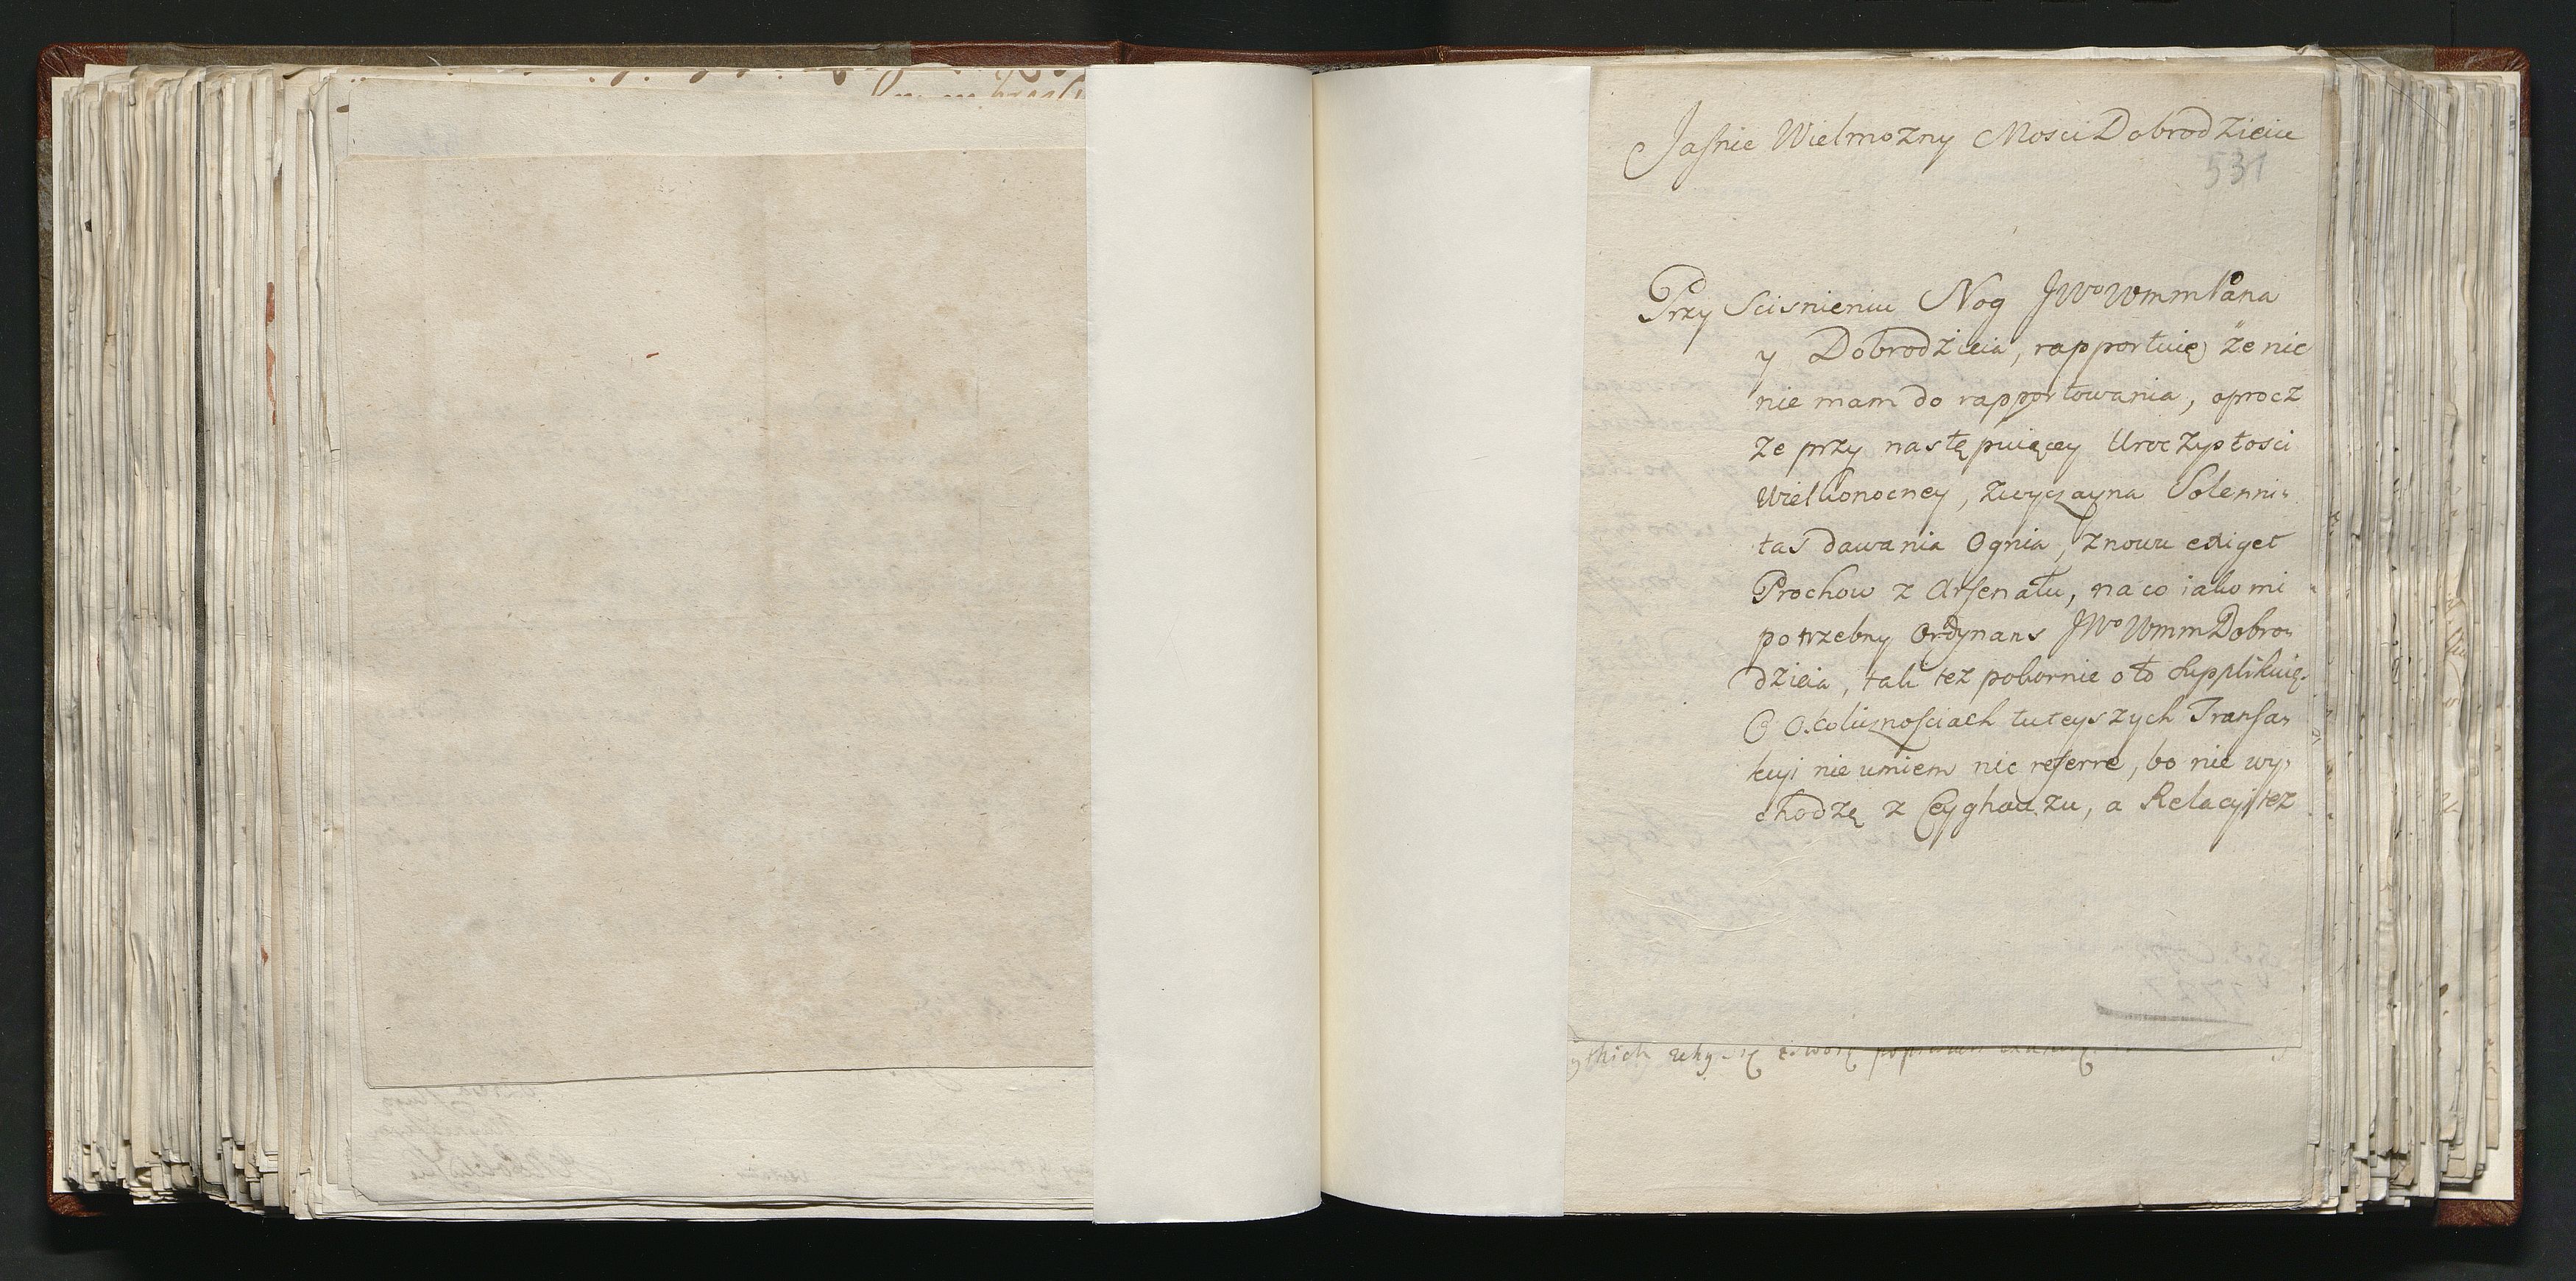 Jaſnie Wielmozny Mosci Dobrodzieiu
531
Przy Scisnieniu Nog JWo Wmm Pana
y Dobrodzieia, rapportuię że nic
nie mam do rapportowania, oprocz
ze przy następuiącey Uroczystosci
Wielkonocney, zwyczayna Solenni-
tas dawania Ognia, znowu exiget
Prochow z Arſenału, na co iako mi
potrzebny Ordynans JWo Wmm Dobro-
dzieia, tak tez pokornie o to supplikuię.
O Okolicznoſciach tuteyszych Transa-
kcyi nie umiem nic referre, bo nie wy-
chodzę z Ceyghauzu, a Relacyi tez